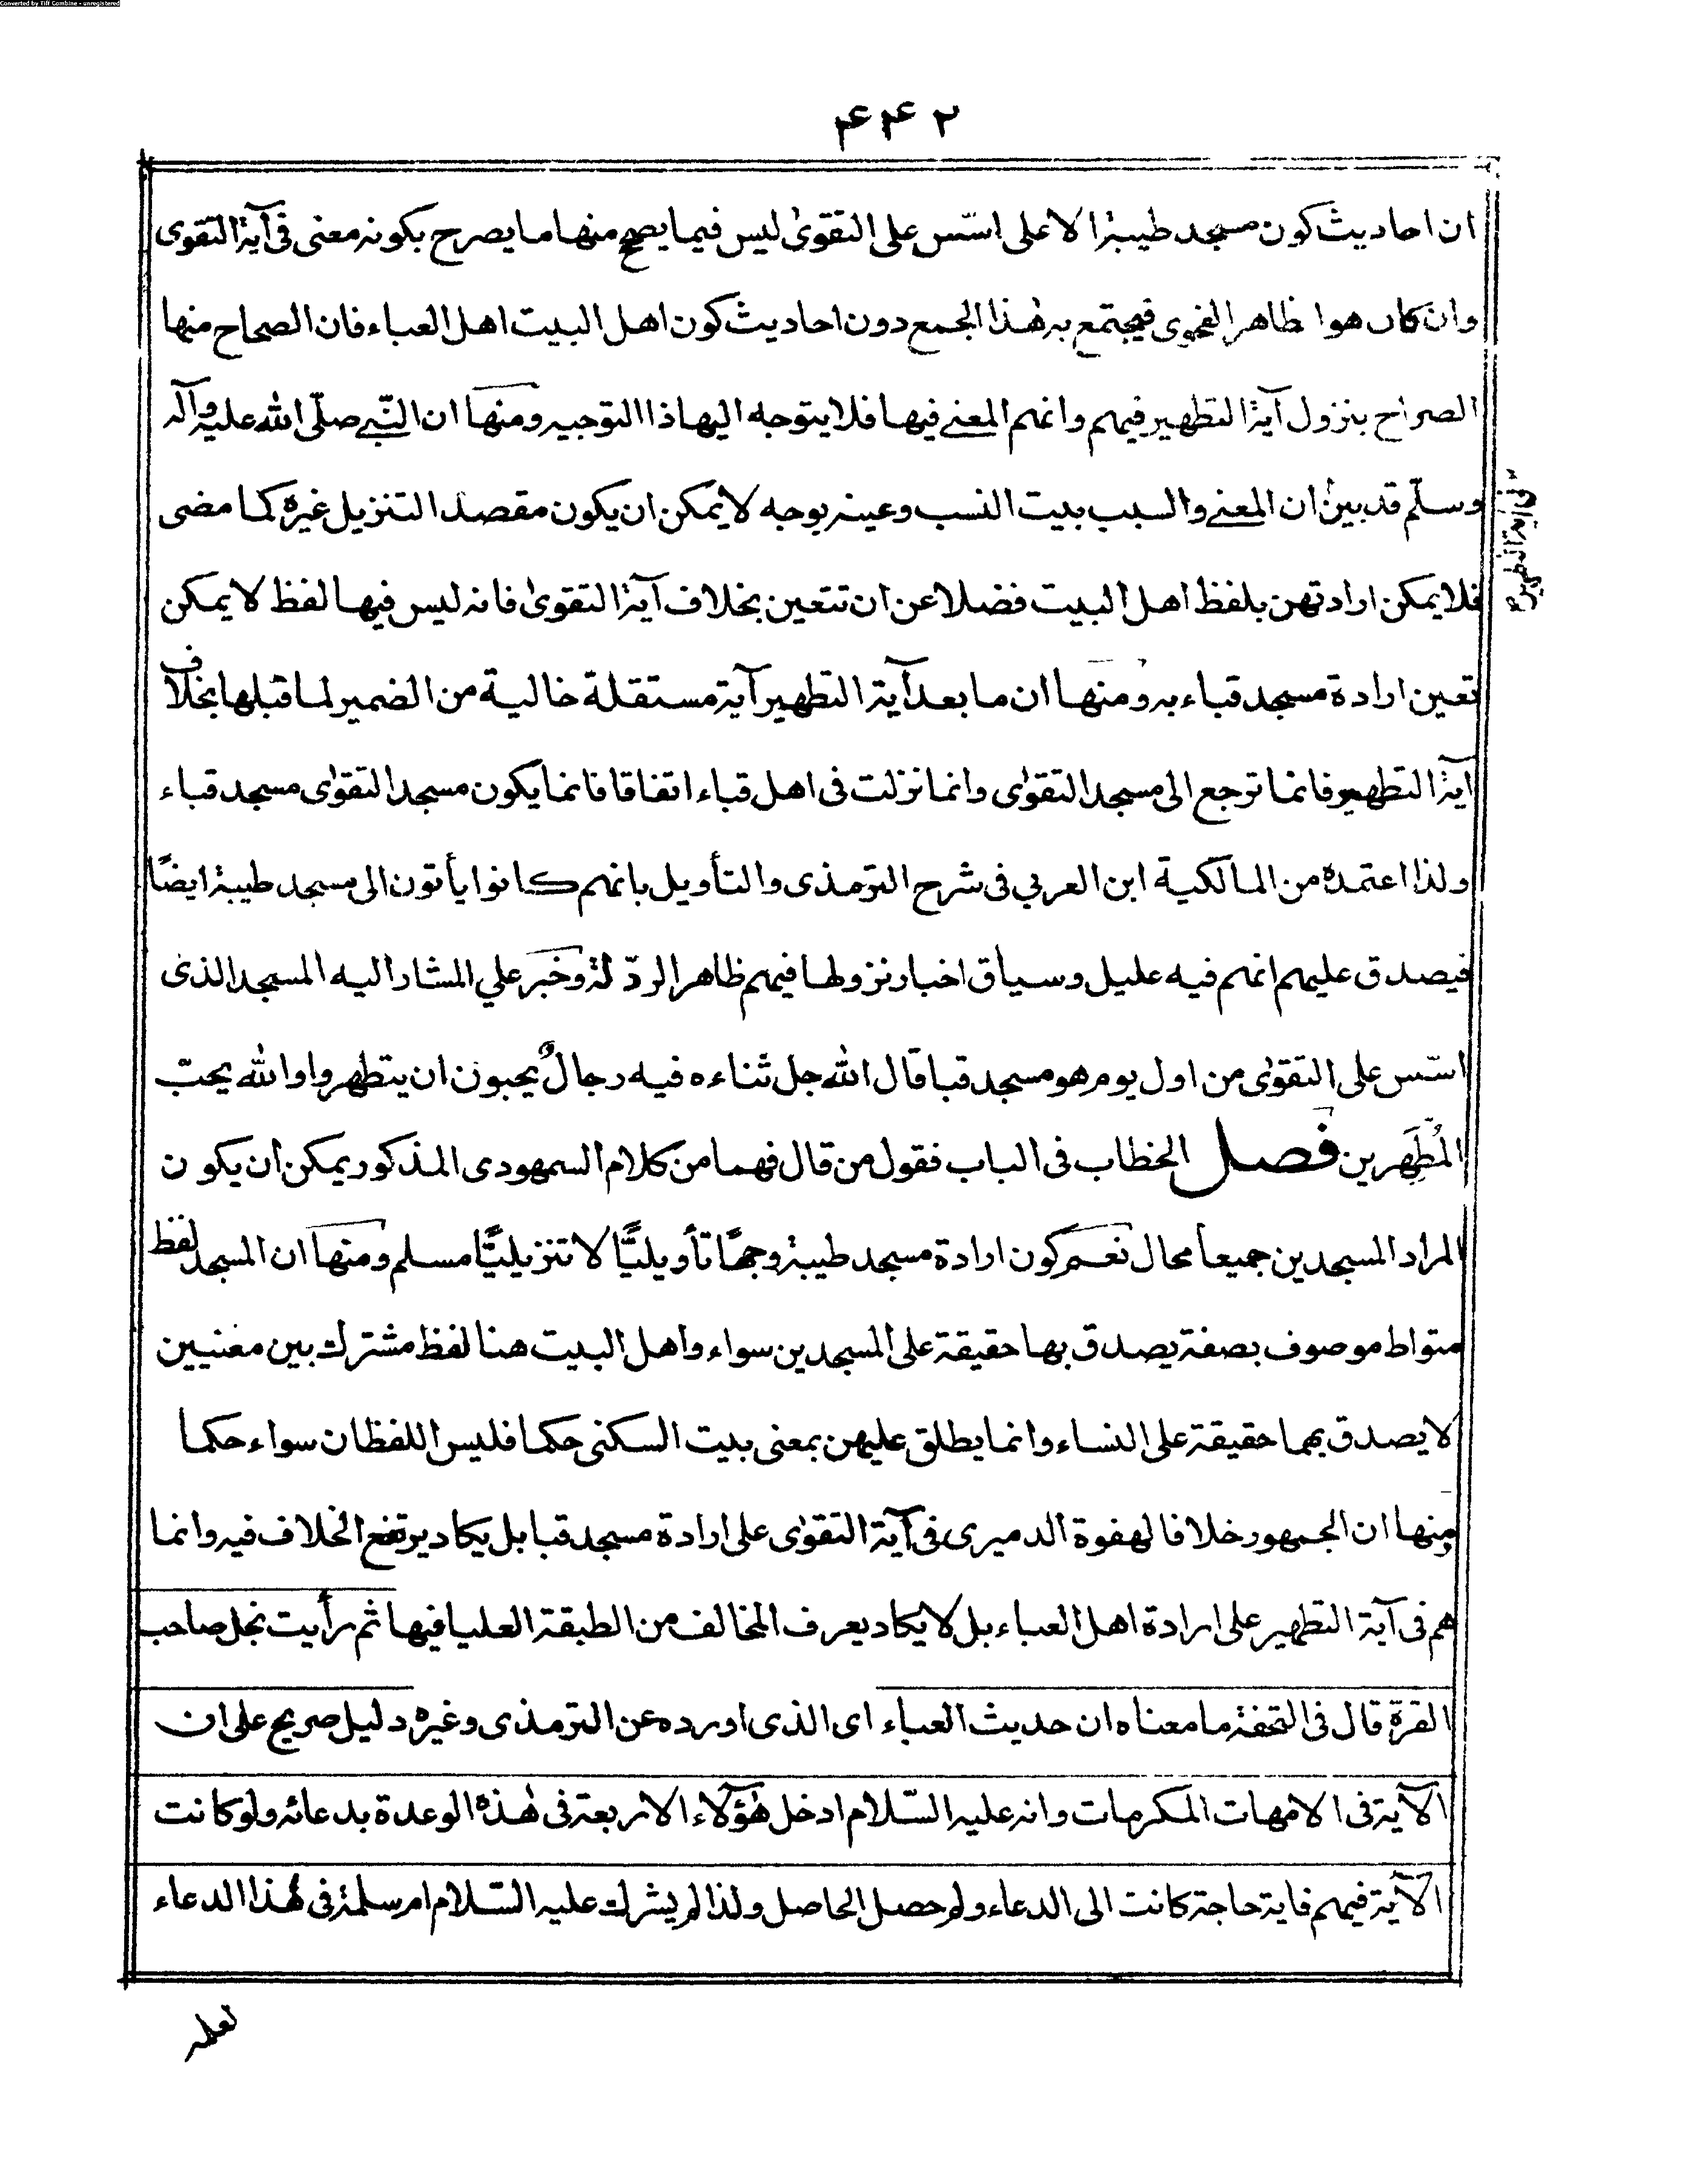 Converted by Tiff Combine - unregistered
۴۴۲
ان احاديث كون مسجد طيبة الاعلى اسّس على التقوىٰ ليس فيما يصح منها ما يصرح بكونه معنى فى آية التقوى
وان كان هوا ظاهر الفحوى فيجتمع به هٰذا الجمع دون احاديث كون اهل البيت اهل العباء فان الصحاح منها
الصراح بنزول آية التطهير فيهم وانهم المعنے فيها فلا يتوجه اليها ذا التوجيه ومنها ان النّبے صلّى الله عليه وآله
وسلّم قد بين ان المعنے والسبب بيت النسب وعينه بوجه لا يمكن ان يكون مقصد التنزيل غيره كما مضى
فى آية التطهير
فلا يمكن ارادتهن بلفظ اهل البيت فضلا عن ان تتعين بخلاف آية التقوىٰ فانه ليس فيها لفظ لا يمكن
تعين ارادة مسجد قباء به ومنها ان ما بعد آية التطهير آية مستقلة خالية من الضمير لما قبلها بخلاف
آية التطهير فانما ترجع الى مسجد التقوٰى وانما نزلت فى اهل قباء اتفاقا فانما يكون مسجد التقوٰى مسجد قباء
ولذا اعتمده من المالكية ابن العربي فى شرح الترمذى والتأويل بانهم كانوا يأتون الى مسجد طيبة ايضًا
فيصدق عليهم انهم فيه عليل وسياق اخبار نزولها فيهم ظاهر الردّ لهٗ وخبر علي المشار اليه المسجد الذى
اسّس على التقوٰى من اول يوم هو مسجد قبا قال الله جل ثناءه فيه رجالٌ يحبون ان يتطهروا والله يحبّ
المُطَّهِرين فصل الخطاب فى الباب فقول من قال فهما من كلام السمهودى المذكور يمكن أن يكون
المراد المسجدين جميعا محال نعم كون ارادة مسجد طيبة وجهًا تأويليًّا لا تنزيليًّا مسلم ومنها ان المسجد لفظ
متواط موصوف بصفة يصدق بها حقيقة على المسجدين سواء واهل البيت هنا لفظ مشترك بين معنيين
لا يصدق بهما حقيقة على النساء وانما يطلق عليهن بمعنى بيت السكنى حكما فليس اللفظان سواء حكما
ومنها ان الجمهور خلافا لهفوة الدميرى فى آية التقوٰى على ارادة مسجد قبا بل يكاد يرتفع الخلاف فيه وانما
هم فى آية التطهير على ارادة اهل العباء بل لا يكاد يعرف المخالف من الطبقة العليا فيها ثم رأيت نجل صاحب
القرة قال فى التحفة ما معناه ان حديث العباء اى الذى اورده عن الترمذى وغيره دليل صريح على ان
الآية فى الامهات المكرمات وانه عليه السّلام ادخل هٰؤلآء الاربعة فى هٰذه الوعدة بدعائه ولو كانت
الآية فيهم فاية حاجة كانت الى الدعاء ولم حصل الحاصل ولذا لم يشرك عليه السّلام ام سلمة فى هٰذا الدعاء